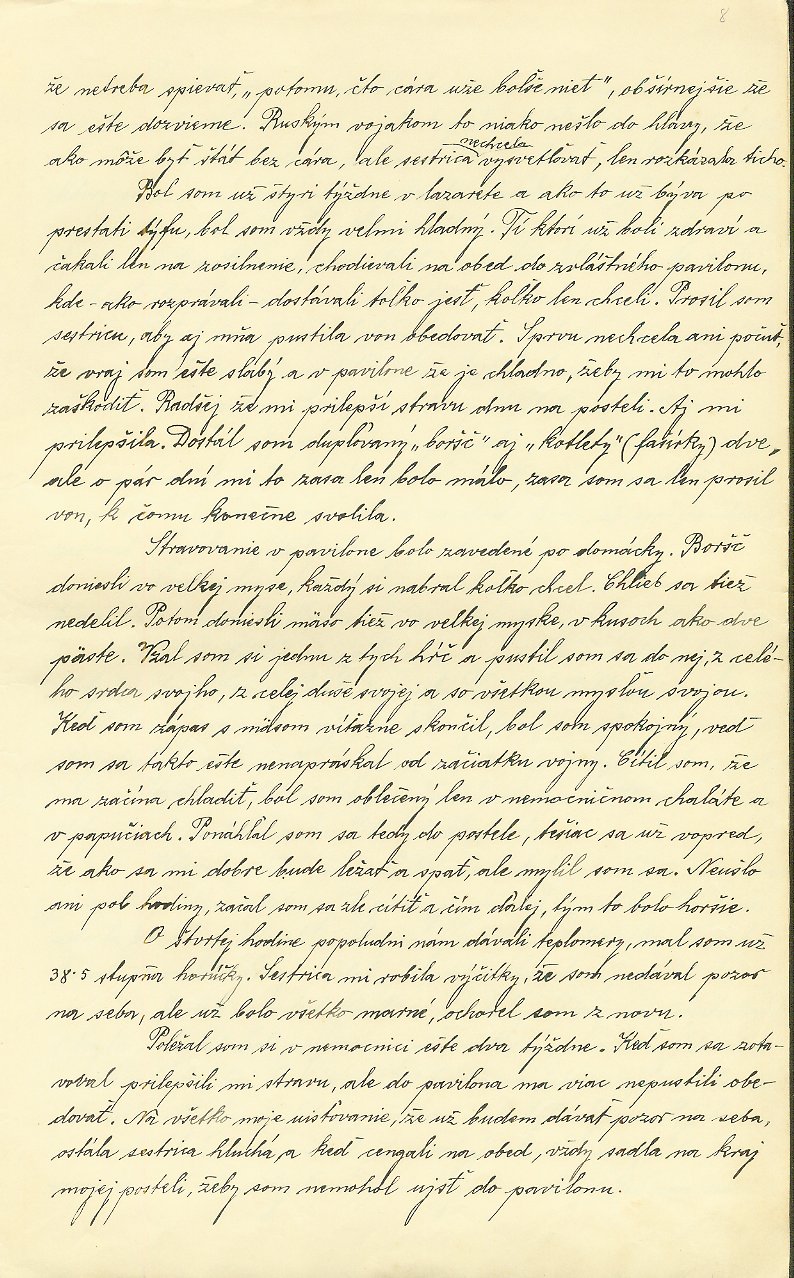 8
že netreba spievať, „potomu, čto cára uže bolše niet", obšírnejšie že
sa ešte dozvieme. Ruským vojakom to niako nešlo do hlavy, že
ako môže byť štát bez cára, ale sestrica nechcela vysvetlovať, len rozkázala ticho.
Bol som už štyri týždne v lazarete a ako to už býva po
prestati týfu, bol som vždy velmi hladný. Tí ktorí už boli zdraví a
čakali len na zosilnenie, chodievali na obed do zvláštného pavilonu,
kde - ako rozprávali - dostávali tolko jesť, kolko len chceli. Prosil som
sestricu, aby aj mňa pustila von obedovať. Sprvu nechcela ani počuť,
že vraj som ešte slabý a v pavilone že je chladno, žeby mi to mohlo
zaškodiť. Radšej že mi prilepší stravu dnu na posteli. Aj mi
prilepšila. Dostál som duplovaný „boršč" aj „kotlety" (fašírky) dve,
ale o pár dní mi to zasa len bolo málo, zasa som sa len prosil
von, k čomu konečne svolila.
Stravovanie v pavilone bolo zavedené po domácky. Boršč
doniesli vo velkej myse, každý si nabral kolko chcel. Chlieb sa tiež
nedelil. Potom doniesli mäso tiež vo velkej myske, v kusoch ako dve
päste. Vzal som si jednu z tych hŕč a pustil som sa do nej, z celé-
ho srdca svojho, z celej duše svojej a so všetkou myslou svojou.
Keď som zápas s mäsom víťazne skončil, bol som spokojný, veď
som sa takto ešte nenapráskal od začiatku vojny. Cítil som, že
ma začína chladiť, bol som oblečený len v nemocničnom chaláte a
v papučiach. Ponáhlal som sa tedy do postele, tešiac sa už vopred,
že ako sa mi dobre bude ležať a spať, ale mylil som sa. Neušlo
ani pol hodiny, začal som sa zle cítiť a čím ďalej, tým to bolo horšie.
O štvrtej hodine popoludni nám dávali teplomery, mal som už
38·5 stupňa horúčky. Sestrica mi robila výčitky, že som nedával pozor
na seba, ale už bolo všetko marné, ochorel som z novu.
Poležal som si v nemocnici ešte dva týždne. Keď som sa zota-
voval prilepšili mi stravu, ale do pavilona ma viac nepustili obe-
dovať. Na všetko moje uisťovanie, že už budem dávať pozor na seba,
ostála sestrica hluchá, a keď cengali na obed, vždy sadla na kraj
mojej posteli, žeby som nemohol ujsť do pavilonu.